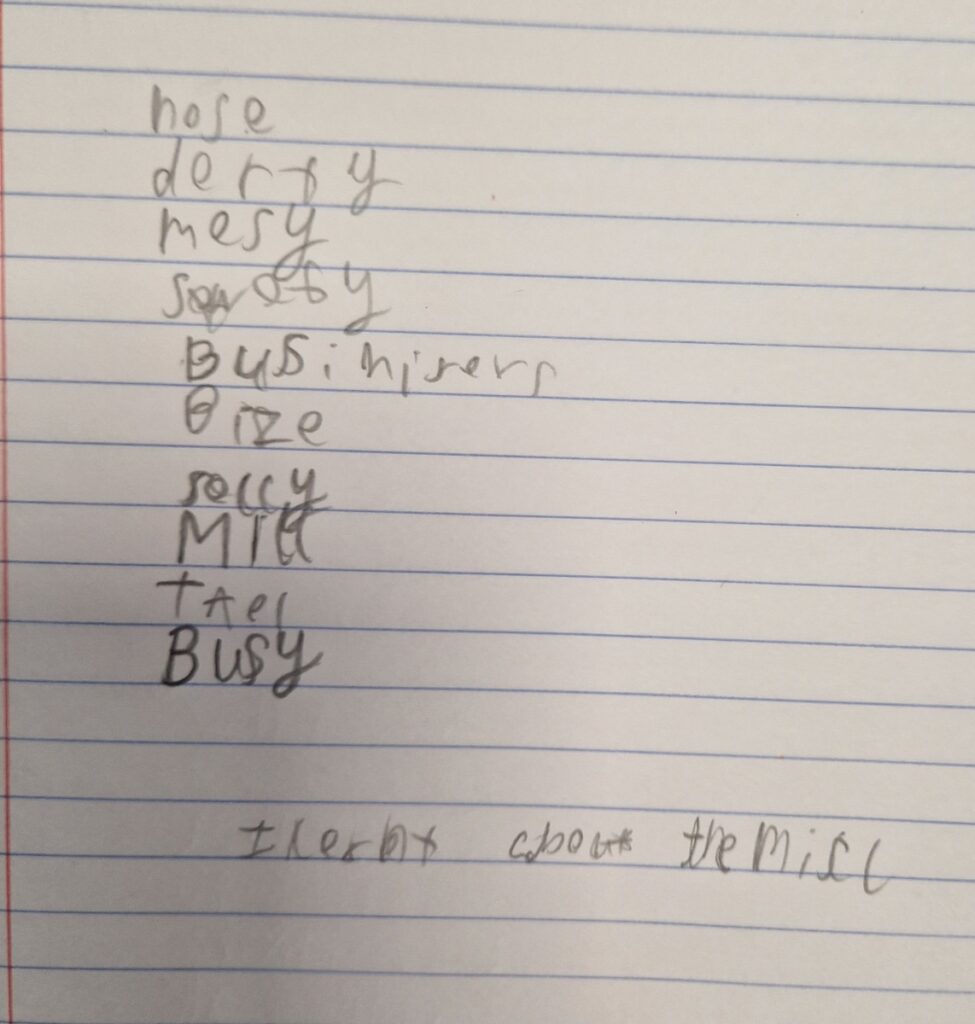 nose
derty
mesy
swoty
Businisers
Bize
solly
Mill
tael
Busy
I lernt about the misl